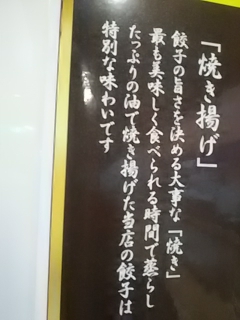 「焼き揚げ」
餃子の旨さを決める大事な「焼き」
最も美味しく食べられる時間で蒸らし
たっぷりの油で焼き揚げた当店の餃子は
特別な味わいです